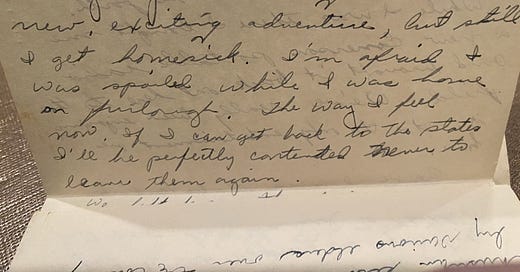 new, exciting adventure, but still
I get homesick. I'm afraid I
was spoiled while I was home
on furlough. The way I feel
now. If I can get back to the states
I'll be perfectly contended never to
leave them again.
by various
over